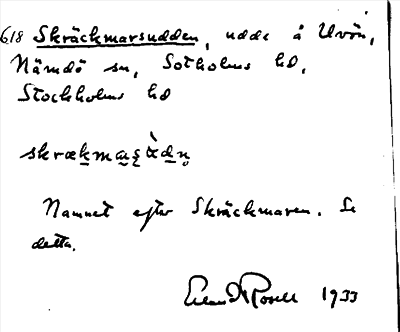 618 Skräckmarsudden, udde å Uvön,
Nämdö sn, Sotholms hd,
Stockholms hd
skrækmaʂ
Namnet efter Skräckmaren. Se
detta.
1933